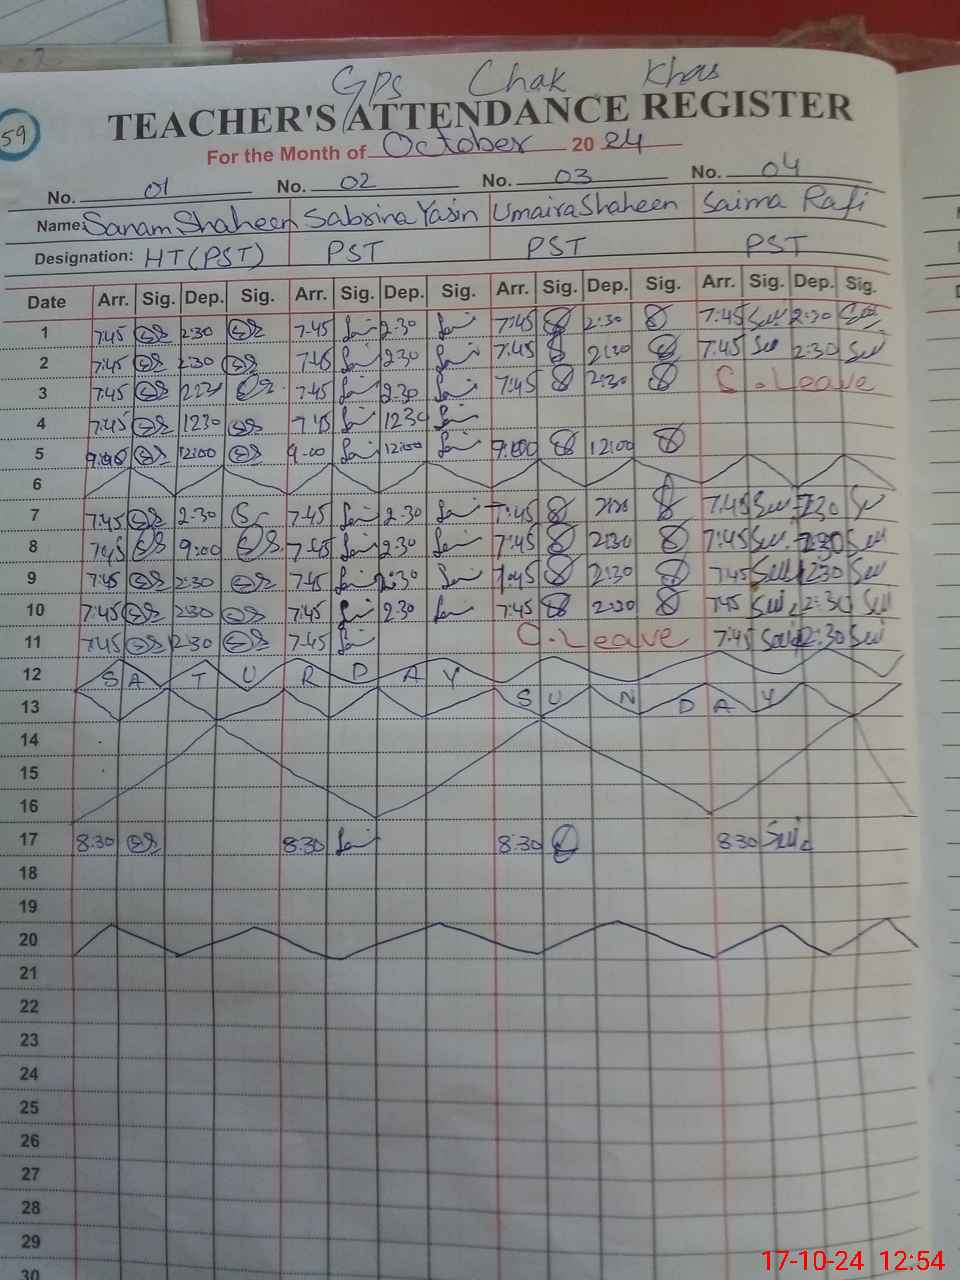 GPS Chak Khas
59
TEACHER'S ATTENDANCE REGISTER
For the Month of October 2024
No. 01 No. 02 No. 03 No. 04
Name: Sanam Shaheen Sabrina Yasin Umaira Shaheen Saima Rafi
Designation: HT (PST) PST PST PST
Date Arr. Sig. Dep. Sig. Arr. Sig. Dep. Sig. Arr. Sig. Dep. Sig. Arr. Sig. Dep. Sig.
1 7:45 2:30 7:45 2:30 7:45 2:30 7:45 2:30
2 7:45 2:30 7:45 2:30 7:45 2:30 7:45 2:30
3 7:45 2:30 7:45 2:30 7:45 2:30 C. Leave
4 7:45 1230 7:45 1230
5 9:00 12:00 9:00 12:00 9:00 12:00
6
7 7:45 2:30 7:45 2:30 7:45 7:45 2:30
8 7:45 9:00 7:45 2:30 7:45 2:30 7:45 2:30
9 7:45 2:30 7:45 2:30 7:45 2:30 7:45 2:30
10 7:45 2:30 7:45 2:30 7:45 2:30 7:45 2:30
11 7:45 2:30 7:45 C. Leave 7:45 2:30
12 SATURDAY
13 SUNDAY
14
15
16
17 8:30 8:30 8:30 8:30
18
19
20
21
22
23
24
25
26
27
28
29
30
17-10-24 12:54